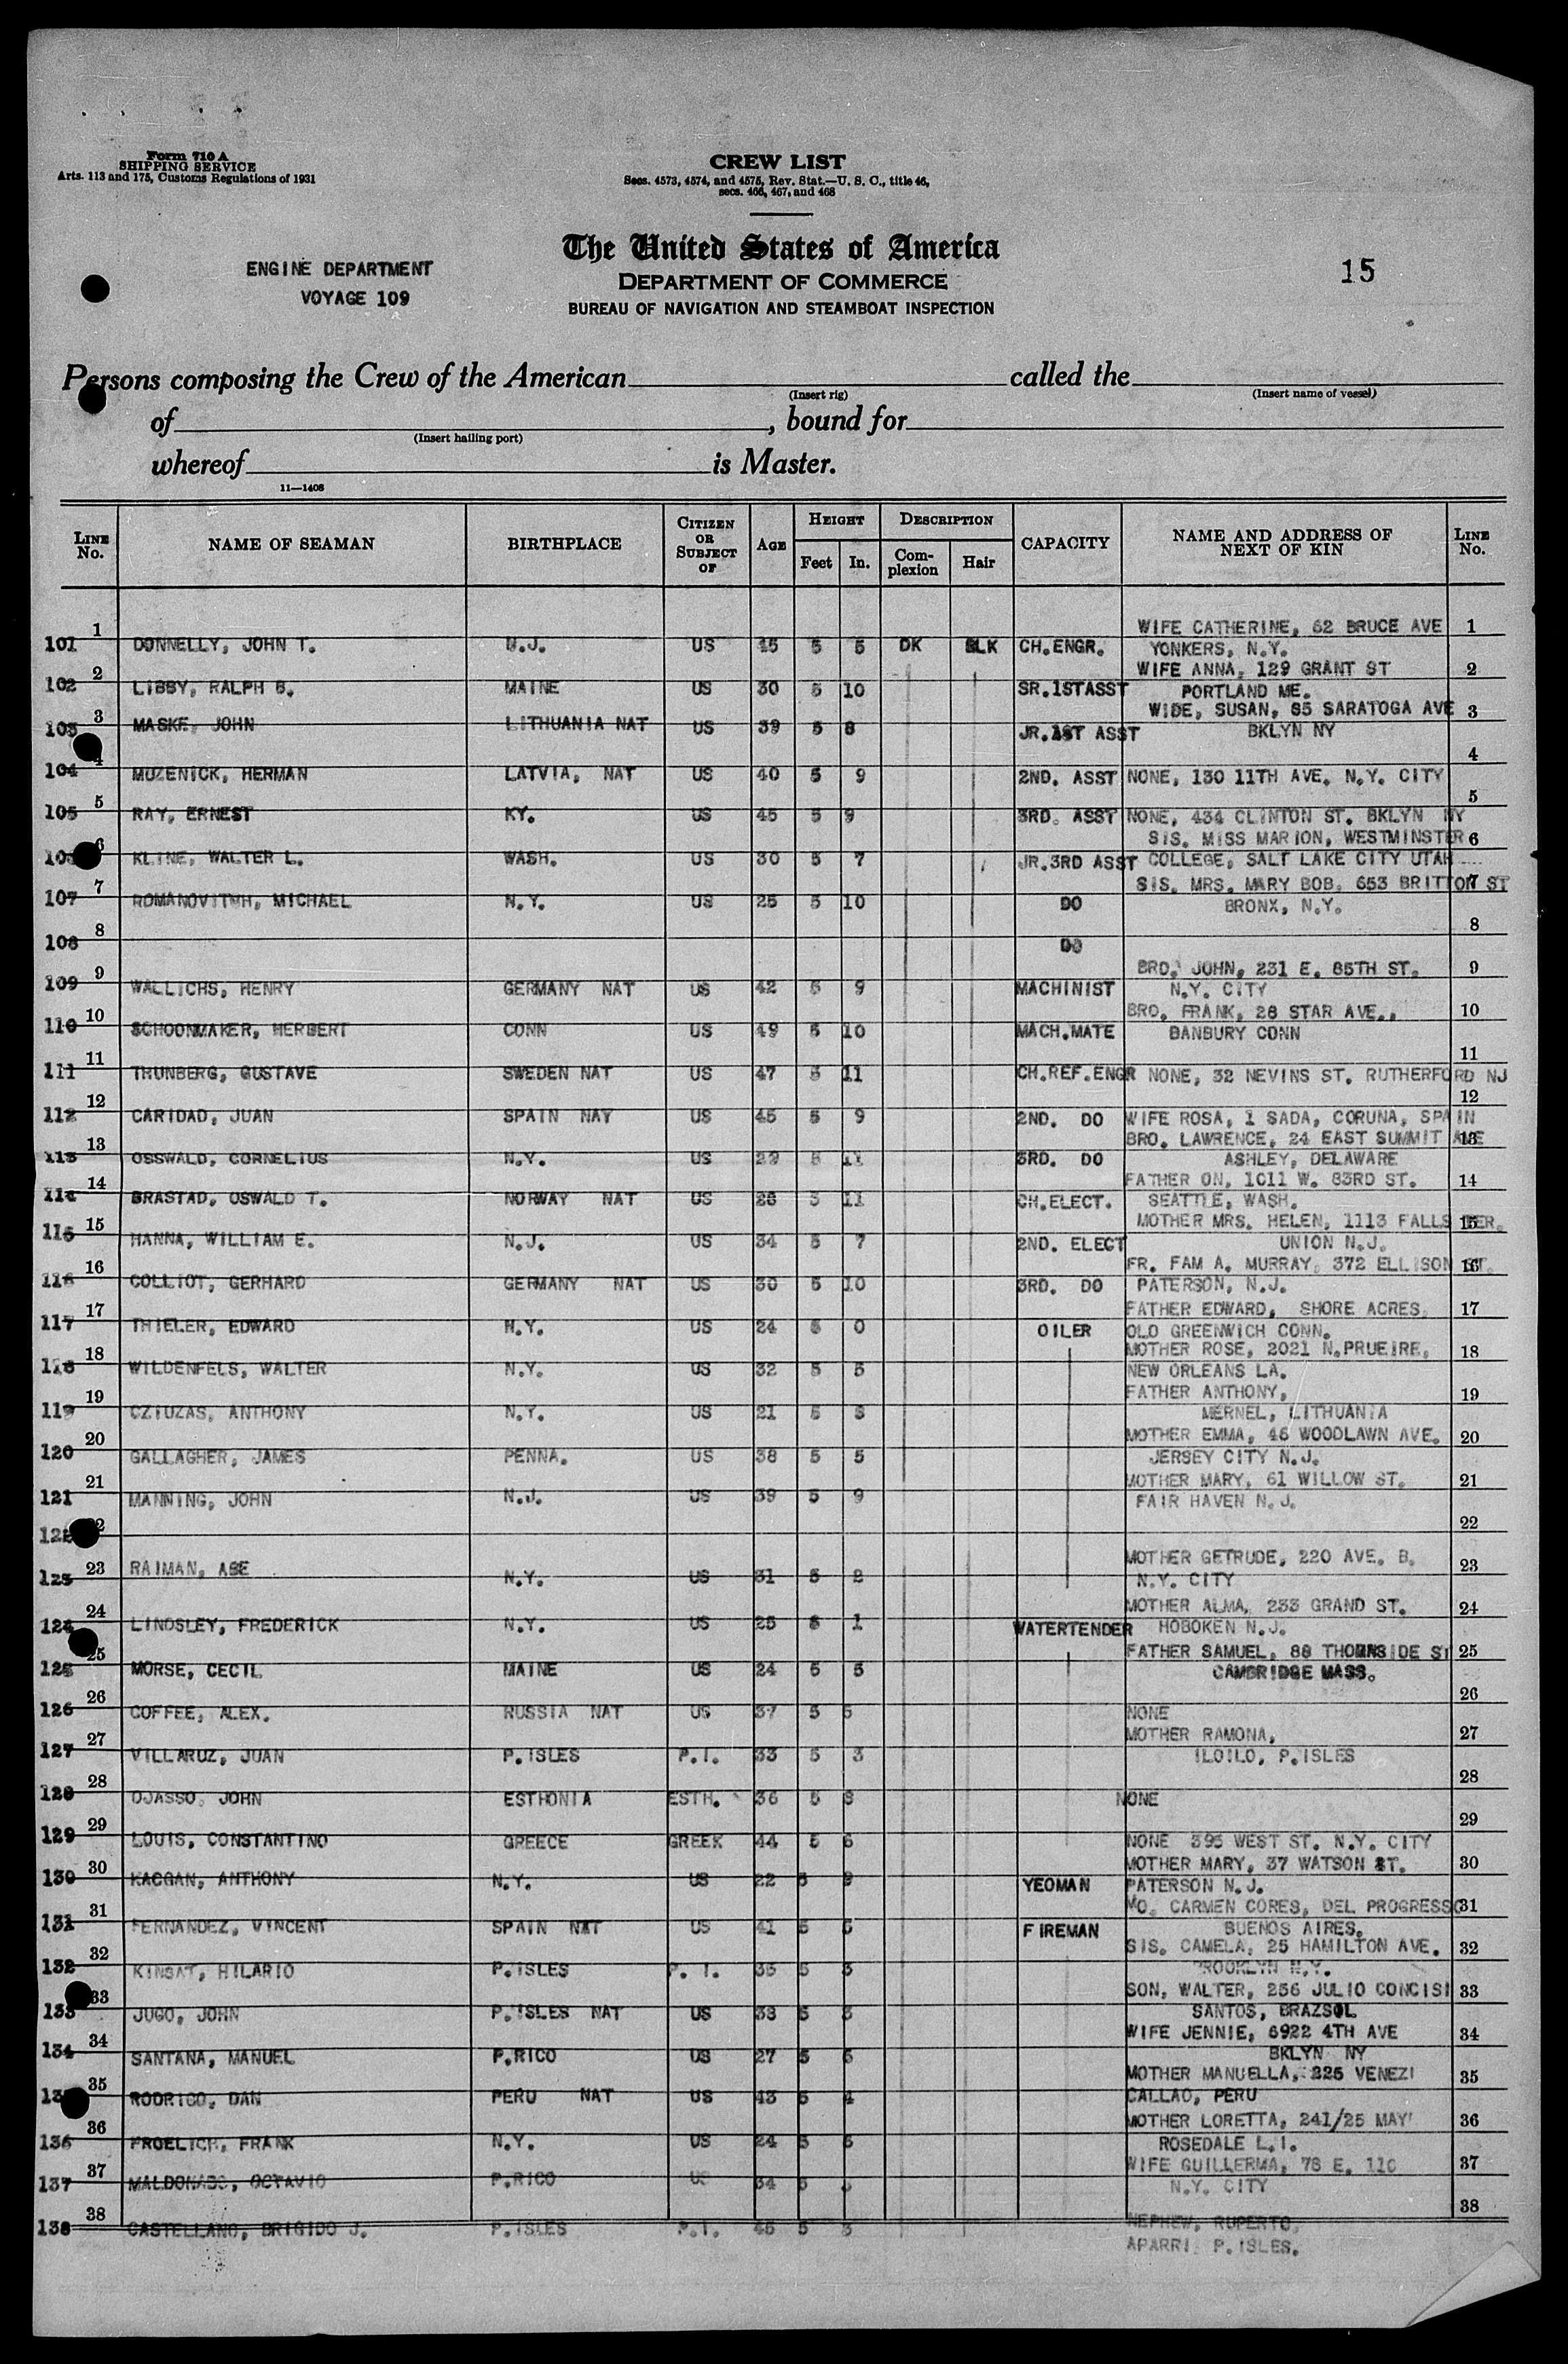 Form 710 A
SHIPPING SERVICE
Arts. 113 and 175, Customs Regulations of 1931
CREW LIST
Secs. 4573, 4574, and 4575, Rev. Stat.—U. S. C., title 46,
secs. 466, 467, and 468
The United States of America
DEPARTMENT OF COMMERCE
BUREAU OF NAVIGATION AND STEAMBOAT INSPECTION
ENGINE DEPARTMENT
VOYAGE 109
15
Persons composing the Crew of the American called the
(Insert rig) (Insert name of vessel)
of , bound for
(Insert hailing port)
whereof is Master.
11—1408
LINE No. NAME OF SEAMAN BIRTHPLACE CITIZEN OR SUBJECT OF AGE HEIGHT Feet In. DESCRIPTION Complexion Hair CAPACITY NAME AND ADDRESS OF NEXT OF KIN LINE No.
WIFE CATHERINE, 62 BRUCE AVE
101 1 DONNELLY, JOHN T. N.J. US 45 5 5 DK BLK CH.ENGR. YONKERS, N.Y. 1
WIFE ANNA, 129 GRANT ST
102 2 LIBBY, RALPH B. MAINE US 30 5 10 SR.1STASST PORTLAND ME. 2
WIDE, SUSAN, 85 SARATOGA AVE
103 3 MASKE, JOHN LITHUANIA NAT US 39 5 8 JR.1ST ASST BKLYN NY 3
104 4 MUZENICK, HERMAN LATVIA, NAT US 40 5 9 2ND. ASST NONE, 130 11TH AVE. N.Y. CITY 4
105 5 RAY, ERNEST KY. US 45 5 9 3RD. ASST NONE, 434 CLINTON ST. BKLYN NY 5
SIS. MISS MARION, WESTMINSTER
6 KLINE, WALTER L. WASH. US 30 5 7 JR.3RD ASST COLLEGE, SALT LAKE CITY UTAH 6
SIS. MRS. MARY BOB, 653 BRITTON ST
107 7 ROMANOVITCH, MICHAEL N.Y. US 25 5 10 DO BRONX, N.Y. 7
108 8 DO 8
BRO. JOHN, 231 E. 85TH ST.
109 9 WALLICHS, HENRY GERMANY NAT US 42 5 9 MACHINIST N.Y. CITY 9
BRO, FRANK, 28 STAR AVE.,
110 10 SCHOONMAKER, HERBERT CONN US 49 5 10 MACH.MATE DANBURY CONN 10
111 11 THUNBERG, GUSTAVE SWEDEN NAT US 47 5 11 CH.REF.ENGR NONE, 32 NEVINS ST. RUTHERFORD NJ 11
112 12 CARIDAD, JUAN SPAIN NAY US 45 5 9 2ND. DO WIFE ROSA, 1 SADA, CORUNA, SPAIN 12
BRO. LAWRENCE, 24 EAST SUMMIT AVE
113 13 OSSWALD, CORNELIUS N.Y. US 29 5 11 3RD. DO ASHLEY, DELAWARE 13
FATHER ON, 1011 W. 83RD ST.
114 14 BRASTAD, OSWALD T. NORWAY NAT US 28 5 11 CH.ELECT. SEATTLE, WASH. 14
MOTHER MRS. HELEN, 1113 FALLS TER.
115 15 HANNA, WILLIAM E. N.J. US 34 5 7 2ND. ELECT UNION N.J. 15
FR. FAM A. MURRAY, 372 ELLISON ST.
116 16 COLLIOT, GERHARD GERMANY NAT US 30 5 10 3RD. DO PATERSON, N.J. 16
FATHER EDWARD, SHORE ACRES,
117 17 THIELER, EDWARD N.Y. US 24 6 0 OILER OLD GREENWICH CONN. 17
MOTHER ROSE, 2021 N.PRUEIRE,
118 18 WILDENFELS, WALTER N.Y. US 32 5 5 NEW ORLEANS LA. 18
FATHER ANTHONY,
119 19 CZIUZAS, ANTHONY N.Y. US 21 5 8 MERNEL, LITHUANIA 19
MOTHER EMMA, 46 WOODLAWN AVE.
120 20 GALLAGHER, JAMES PENNA. US 38 5 5 JERSEY CITY N.J. 20
MOTHER MARY, 61 WILLOW ST.
121 21 MANNING, JOHN N.J. US 39 5 9 FAIR HAVEN N.J. 21
122 22 22
MOTHER GETRUDE, 220 AVE. B.
123 23 RAIMAN, ABE N.Y. US 31 5 2 N.Y. CITY 23
MOTHER ALMA, 233 GRAND ST.
124 24 LINDSLEY, FREDERICK N.Y. US 25 6 1 WATERTENDER HOBOKEN N.J. 24
FATHER SAMUEL, 88 THORNSIDE ST
125 25 MORSE, CECIL MAINE US 24 5 5 CAMBRIDGE MASS. 25
126 26 COFFEE, ALEX. RUSSIA NAT US 37 5 6 NONE 26
MOTHER RAMONA,
127 27 VILLARUZ, JUAN P.ISLES P.I. 33 5 3 ILOILO, P.ISLES 27
128 28 OJASSO, JOHN ESTHONIA ESTH. 36 5 8 NONE 28
129 29 LOUIS, CONSTANTINO GREECE GREEK 44 5 6 NONE 395 WEST ST. N.Y. CITY 29
MOTHER MARY, 37 WATSON ST.
130 30 KACGAN, ANTHONY N.Y. US 22 5 9 YEOMAN PATERSON N.J. 30
MO. CARMEN CORES, DEL PROGRESSO
131 31 FERNANDEZ, VINCENT SPAIN NAT US 41 5 6 FIREMAN BUENOS AIRES. 31
SIS. CAMELA, 25 HAMILTON AVE.
132 32 KINSAT, HILARIO P.ISLES P. I. 35 5 3 BROOKLYN N.Y. 32
SON, WALTER, 256 JULIO CONCISI
133 33 JUGO, JOHN P.ISLES NAT US 38 5 3 SANTOS, BRAZSOL 33
WIFE JENNIE, 6922 4TH AVE
134 34 SANTANA, MANUEL P.RICO US 27 5 6 BKLYN NY 34
MOTHER MANUELLA, 225 VENEZI
35 RODRIGO, DAN PERU NAT US 43 5 4 CALLAO, PERU 35
MOTHER LORETTA, 241/25 MAY
136 36 FROELICH, FRANK N.Y. US 24 5 6 ROSEDALE L.I. 36
WIFE GUILLERMA, 78 E. 110
137 37 MALDONADO, OCTAVIO P.RICO US 34 5 N.Y. CITY 37
138 38 CASTELLANO, BRIGIDO J. P.ISLES P.I. 45 5 3 NEPHEW, RUPERTO, 38
APARRI P.ISLES.